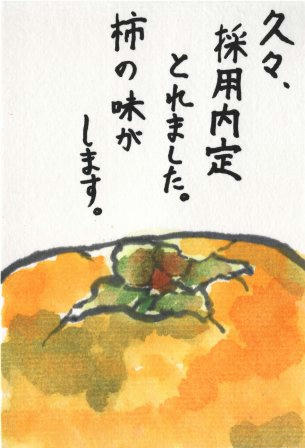 久々、
採用内定
とれました。
柿の味が
します。